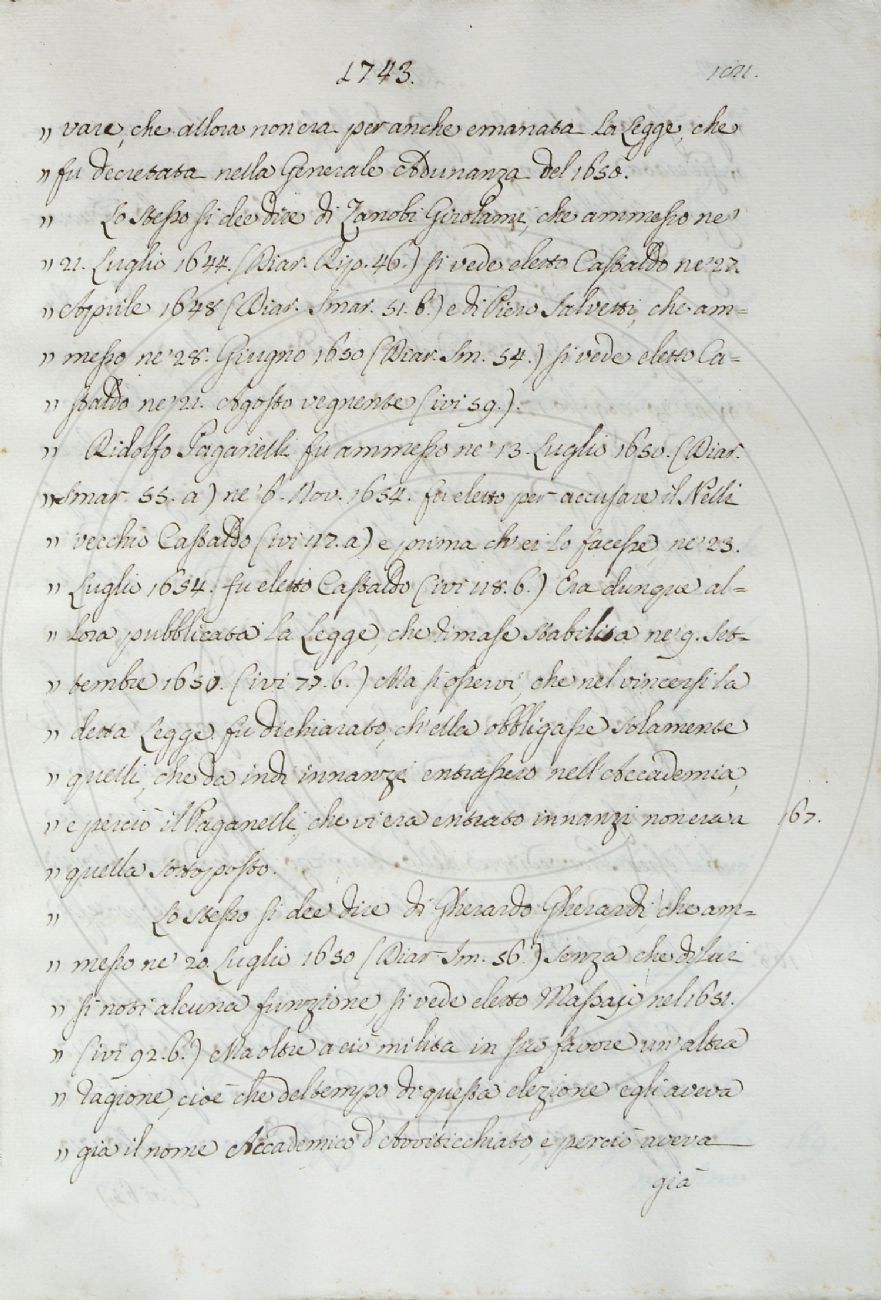 1743.
„ vare, che allora non era per anche emanata la Legge, che
„ fu decretata nella Generale Adunanza del 1650.
„ Lo stesso si dee dire di Zanobi Girolami, che ammesso ne'
„ 21. Luglio 1644. (Diar. Rip. 46.) si vede eletto Castaldo ne' 27.
„ Aprile 1648 (Diar. Smar. 51. b.) e di Piero Salvetti, che am=
„ messo ne' 28. Giugno 1650 (Diar. Sm. 54.) si vede eletto Ca=
„ staldo ne' 21. Agosto vegnente (ivi 59.).
„ Ridolfo Paganelli fu ammesso ne' 13. Luglio 1650. (Diar.
„ Smar. 55. a) ne' 6. Nov. 1654. fu eletto per accusare il Nelli
„ vecchio Castaldo (ivi 117. a) e prima ch' ei lo facesse, ne' 23.
„ Luglio 1654. fu eletto Castaldo (ivi 118. b.) Era dunque al=
„ lora pubblicata la Legge, che rimase stabilita ne' 9. Set=
„ tembre 1650. (ivi 77. b.) Ma si osservi, che nel vincersi la
„ detta Legge fu dichiarato, ch' ella obbligasse solamente
„ quelli, che da indi innanzi entrassero nell' Accademia,
„ e perciò il Paganelli, che vi era entrato innanzi non era a 167.
„ quella sottoposto.
„ Lo stesso si dee dire di Gherardo Gherardi, che am=
„ messo ne' 20. Luglio 1650 (Diar. Sm. 56.) senza che di lui
„ si noti alcuna funzione si vede eletto Massajo nel 1651.
„ (ivi 92. b.) Ma oltre a ciò milita in suo favore un' altra
„ ragione, cioè che del tempo di questa elezione egli aveva
„ già il nome Accademico d' Avviticchiato, e perciò aveva
già